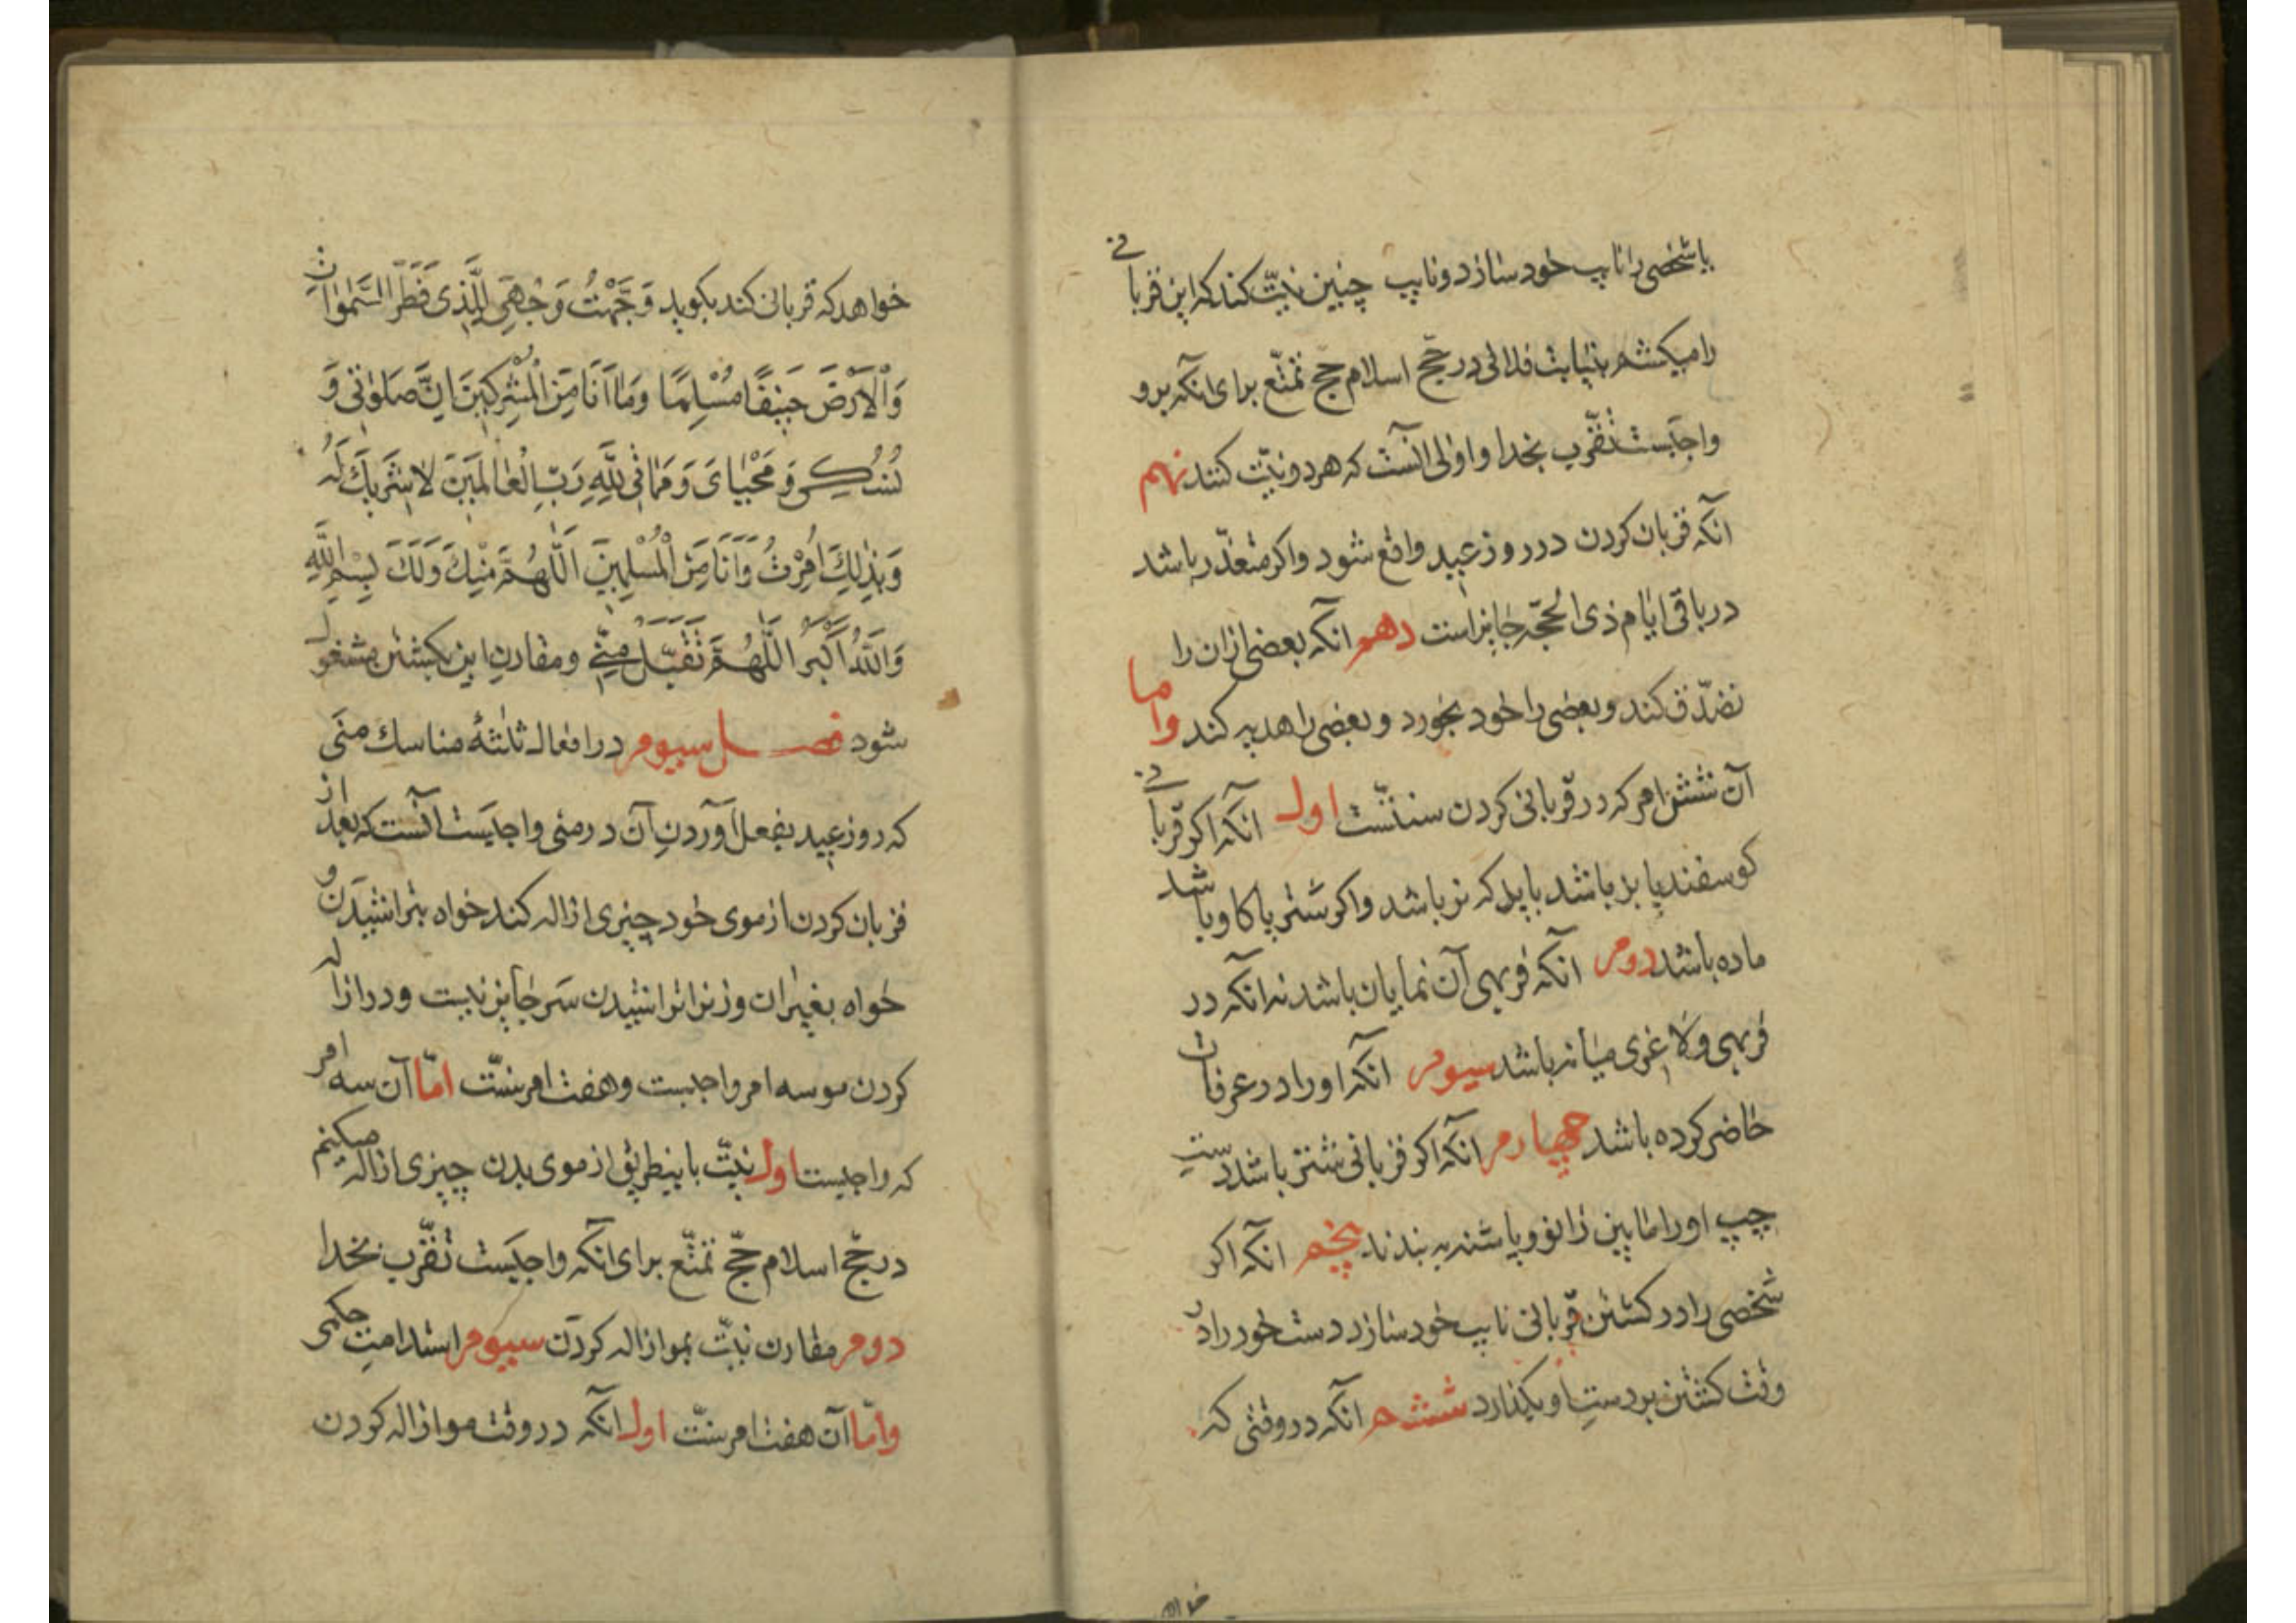 یا شخصی را نایب خود سازد و نایب چنین نیّت کند که این قربانی
را میکشم بنیابت فلانی در حجّ اسلام حجّ تمتّع برای انکه برو
واجبست تقرّب بخدا و اولی آنست که هر دو نیّت کنند نهم
انکه قربان کردن در روز عید واقع شود و اکر متعذّر باشد
در باقی ایّام ذی الحجّه جایز است دهم انکه بعضی از ان را
تصدّق کند و بعضی را خود بخورد و بعضی را هدیه کند و اما
آن شش امر که در قربانی کردن سنتّست اول انکه اکر قربانی
کوسفند یا بز باشد باید که نر باشد و اکر شتر یا کاو باشد
ماده باشد دوم انکه فربهی آن نمایان باشد نه انکه در
فربهی و لاغری میانه باشد سیوم انکه او را در عرفات
حاضر کرده باشد چهارم انکه اکر قربانی شتر باشد دست
چپ او را مابین زانو و پاشنه به بندند پنجم انکه اکر
شخصی را در کشتن قربانی نایب خود سازد دست خود را در
وقت کشتن بر دستِ او بکذارد ششم انکه در وقتی که
خواهد
خواهد که قربانی کند بکوید وَجَّهْتُ وَجْهِیَ لِلَّذی فَطَرَ السَّمٰواتِ
وَالْاَرْضَ حَنیفًا مُسْلِمًا وَمٰا اَنَا مِنَ الْمُشْرِکینَ اِنَّ صَلوٰتی وَ
نُسُکی وَ مَحْیٰایَ وَ مَمٰاتی لِلّٰهِ رَبِّ الْعٰالَمینَ لٰا شَریکَ لَهُ
وَبِذٰلِکَ اُمِرْتُ وَ اَنَا مِنَ الْمُسْلِمینَ اَللّٰهُمَّ مِنْکَ وَلَکَ بِسْمِ اللّٰهِ
وَاللّٰهُ اَکْبَرُ اَللّٰهُمَّ تَقَبَّلْ مِنّی و مقارنِ این بکشتن مشغول
شود فصل سیوم در افعال ثلٰثهٔ مناسك منَی
که روز عید بفعل آوردنِ آن در منی واجبست آنست که بعد از
قربان کردن از موی خود چیزی ازاله کند خواه بتراشیدن و
خواه بغیر ان و زنرا تراشیدن سَر جایز نیست و در ازاله
کردن مو سه امر واجبست و هفت امر سنّت امّا آن سه امر
که واجبست اول نیّت باینطریق از موی بدن چیزی ازاله میکنم
در حجّ اسلام حجّ تمتّع برای انکه واجبَست تقرّب بخدا
دوم مقارن نیّت بمو ازاله کردن سیوم استدامتِ حکمی
و امّا آن هفت امر سنّت اول انکه در وقت مو ازاله کردن